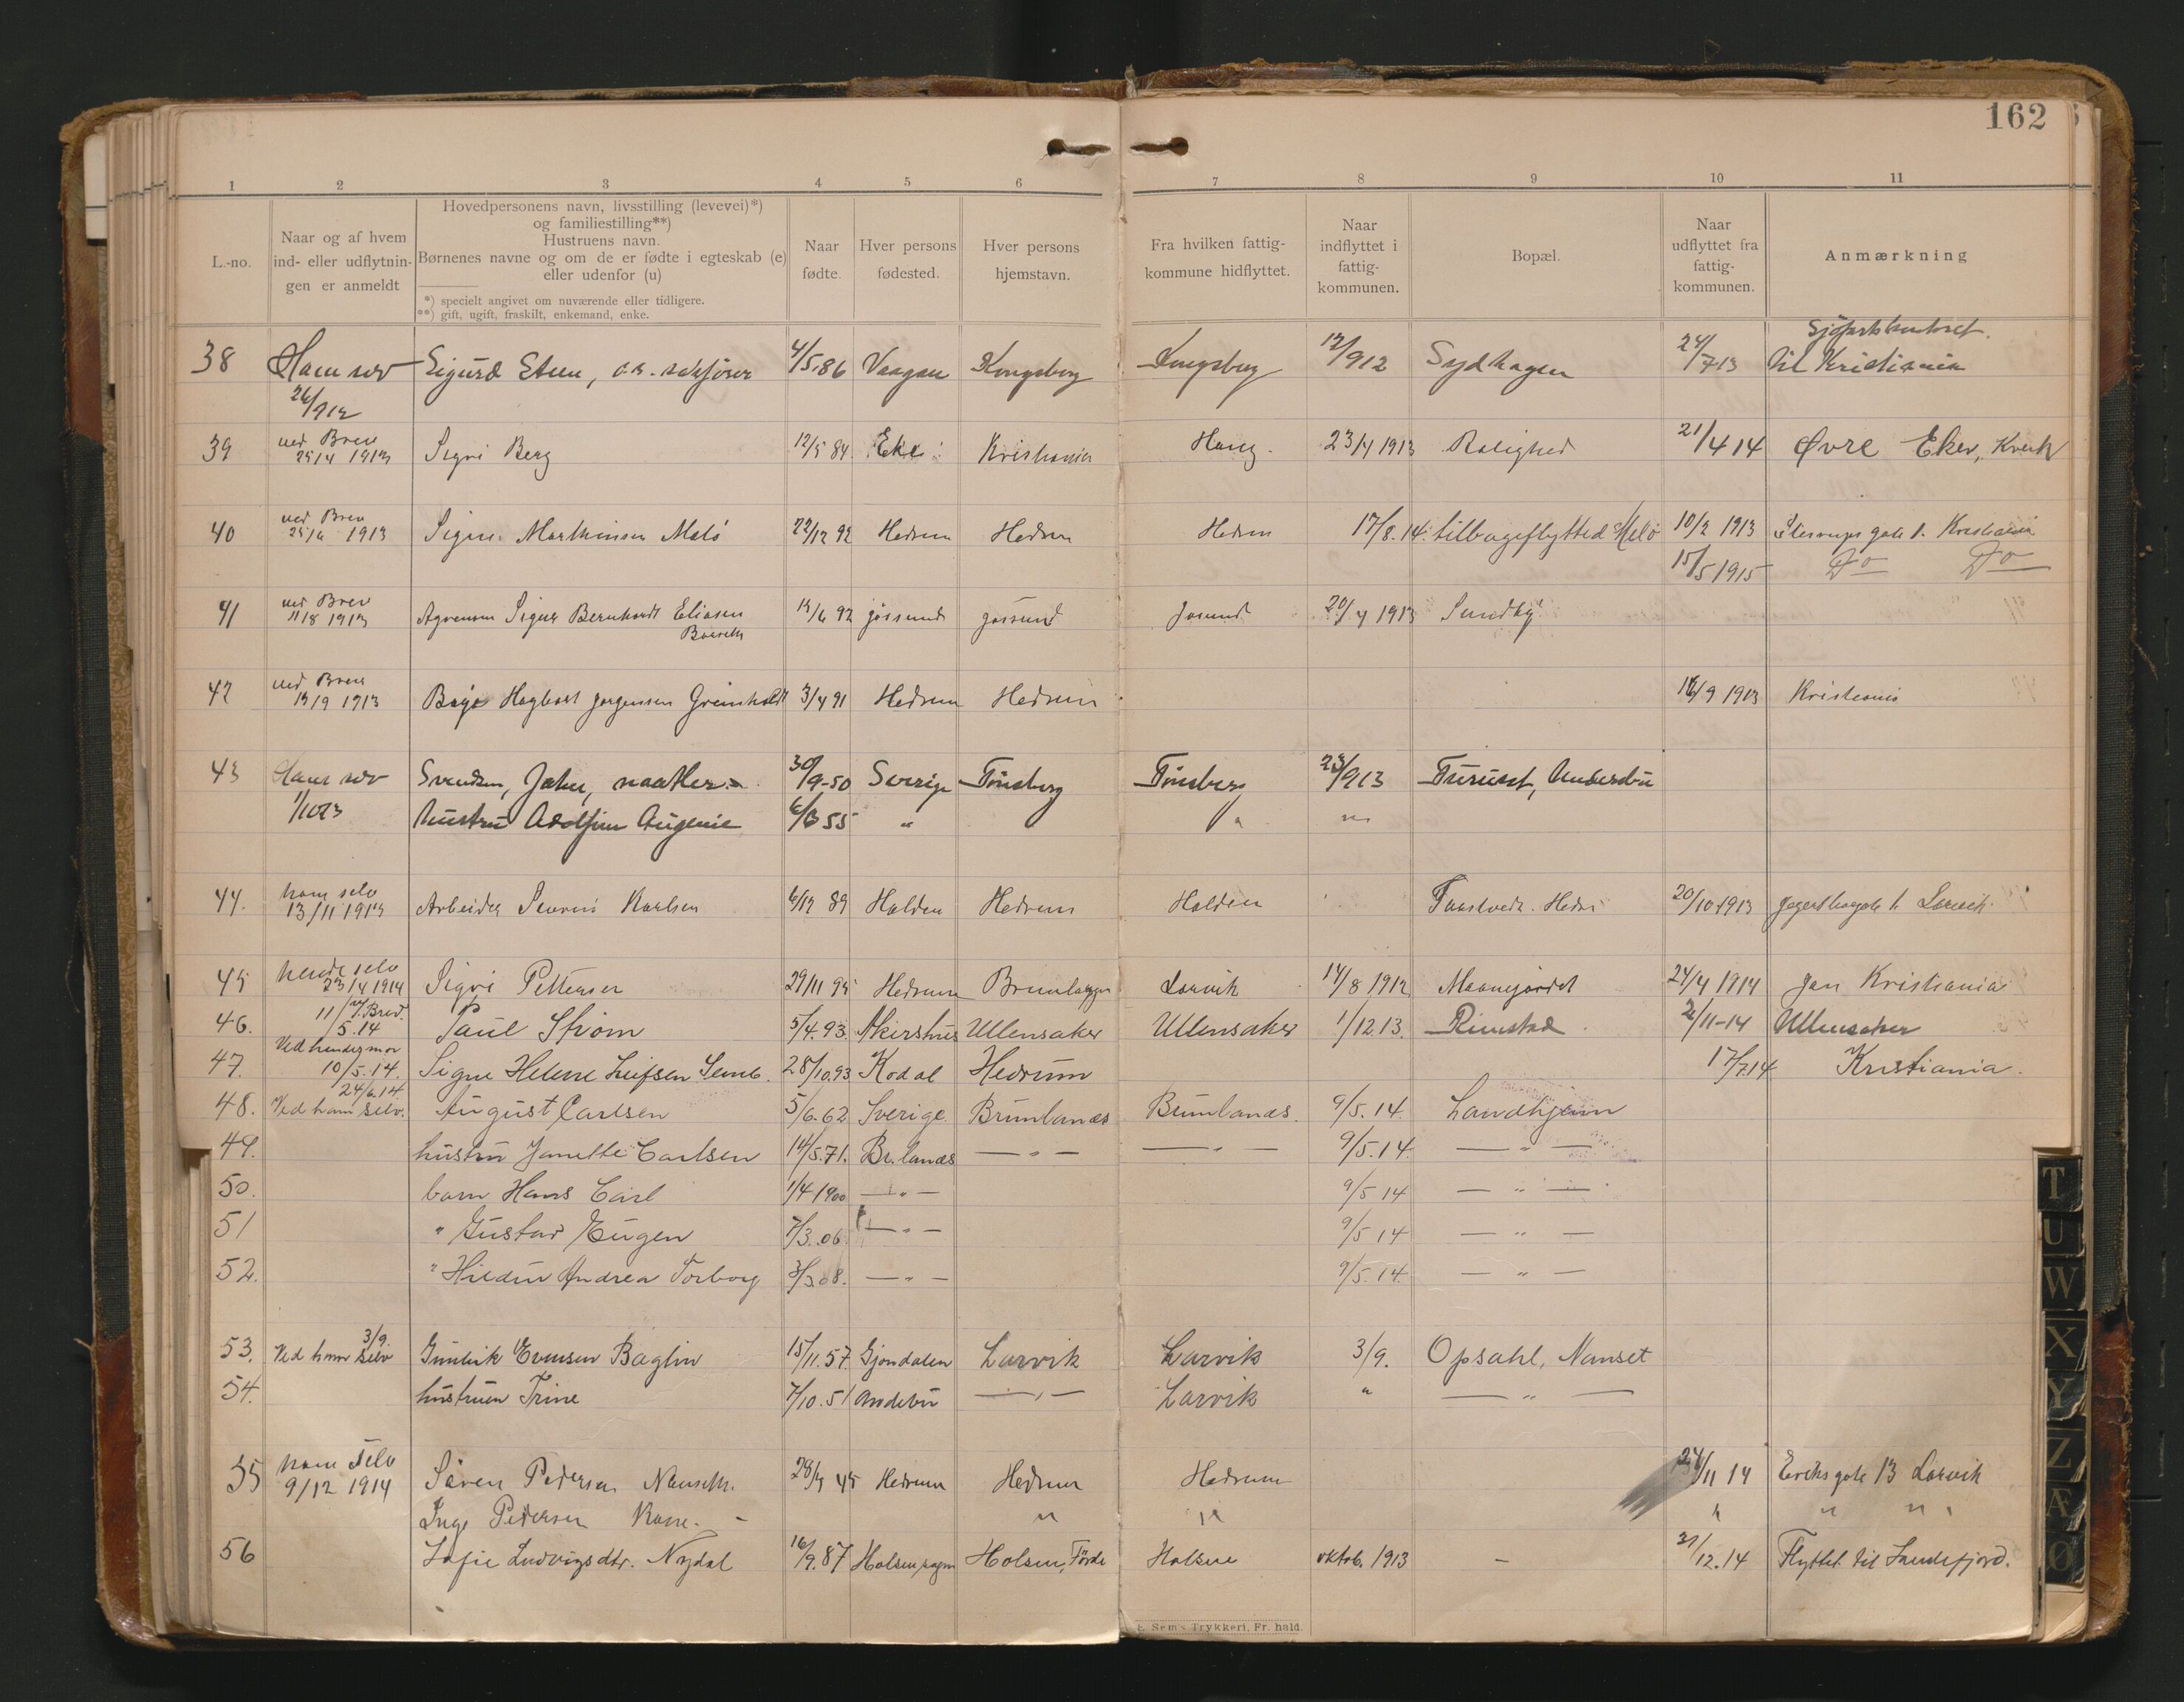 162
1 2 3 4 5 6 7 8 9 10 11
L.-no.
Naar og af hvem
ind- eller udflytnin-
gen er anmeldt
Hovedpersonens navn, livsstilling (levevei)*)
og familiestilling**)
Hustruens navn.
Børnenes navne og om de er fødte i egteskab (e)
eller udenfor (u)
*) specielt angivet om nuværende eller tidligere.
**) gift, ugift, fraskilt, enkemand, enke.
Naar
fødte.
Hver persons
fødested.
Hver persons
hjemstavn.
Fra hvilken fattig-
kommune hidflyttet.
Naar
indflyttet i
fattig-
kommunen.
Bopæl.
Naar
udflyttet fra
fattig-
kommunen.
Anmærkning
38 Ham selv Sigurd 4/5 86 Vaagan Kongsberg Kongsberg 12/912 Sydhagen 24/713 til Kristiania
26/912
39 ved Brev Sigri Berg 12/5 84 Eker Kristiania Haug 23/4 1913 Rolighed 21/4 14 Øvre Eker,
25/4 1913
40 ved Brev Signe Marthinsen Melø 22/12 92 Hedrum Hedrum Hedrum 17/8.14 tilbageflytted Melø 10/2 1913 gate 1. Kristiania
25/4 1913 15/5 1915 Do Do
41 ved Brev Signe Bernhardt Eliasen 92 Jøssund Jøssund Jøsund 20/4 1913 Sundby
11/8 1913
42 ved Brev Hagbart Jørgensen Grimholdt 3/4 91 Hedrum Hedrum 16/9 1913 Kristiania
13/9 1913
43 Ham selv Svendsen, Johan, 30/9-50 Sverige Tønsberg Tønsberg 23/913 Furuset,
1/1013 hustru Adolfine Augenie 6/3 55 " " "
44. ham selv Arbeider Karlsen 6/12 89 Halden Hedrum Halden Hedr 20/10 1913 1. Larvik
13/11 1913
45 hende selv Sigri Pettersen 29/11 95 Hedrum Brunlanes Larvik 14/8 1912 Maanejordet 24/4 1914 Kristiania
23/4 1914
46. 11/5.14 Brev. Paul Strøm 5/4.93. Akershus Ullensaker Ullensaker 1/12.13. Rimstad 2/11-14 Ullensaker
47. Ved hendes mor Signe Helene Leifsen Semb. 28/10.93 Kodal Hedrum 17/7.14 Kristiania.
10/5.14.
48. 24/6.14 Ved ham selv. August Carlsen 5/6.62 Sverige Brunlanæs Brunlanæs. 9/5.14 Landhjem
49. hustru Janette Carlsen 14/5.71. Br.lanæs — " — — " — 9/5.14. — " —
50. barn Hans Carl 1/4 1900 — " — 9/5 14 — " —
51 " Gustav Eugen 7/3.06 — " — 9/5 14 — " —
52. " Hildur Andrea Torborg 3/3 08. — " — 9/5.14. — " —
53. 3/9. Ved ham selv Evensen Baglin 15/11.57 Gjøndalen Larvik Larvik 3/9. Opsahl, Nanset
54. hustruen Trine 7/10.51 Andebu — " — Larvik " — " —
55 ham selv Søren Pedersen Nanseth. 28/9 45 Hedrum Hedrum Hedrum 24/11 14 Eriks gate 13 Larvik
9/12 1914 Inge Pedersen Kone. - " " " " "
56 Sofie Ludvigsdtr. Nydal 16/9.87 Holsen, sogn Holsen, Førde Holsen oktob. 1913 - 31/12.14 Flyttet til Sandefjord.
E. Sem's Trykkeri, Fr. hald.
T
U
W
X
Y
Z
Æ
Ø